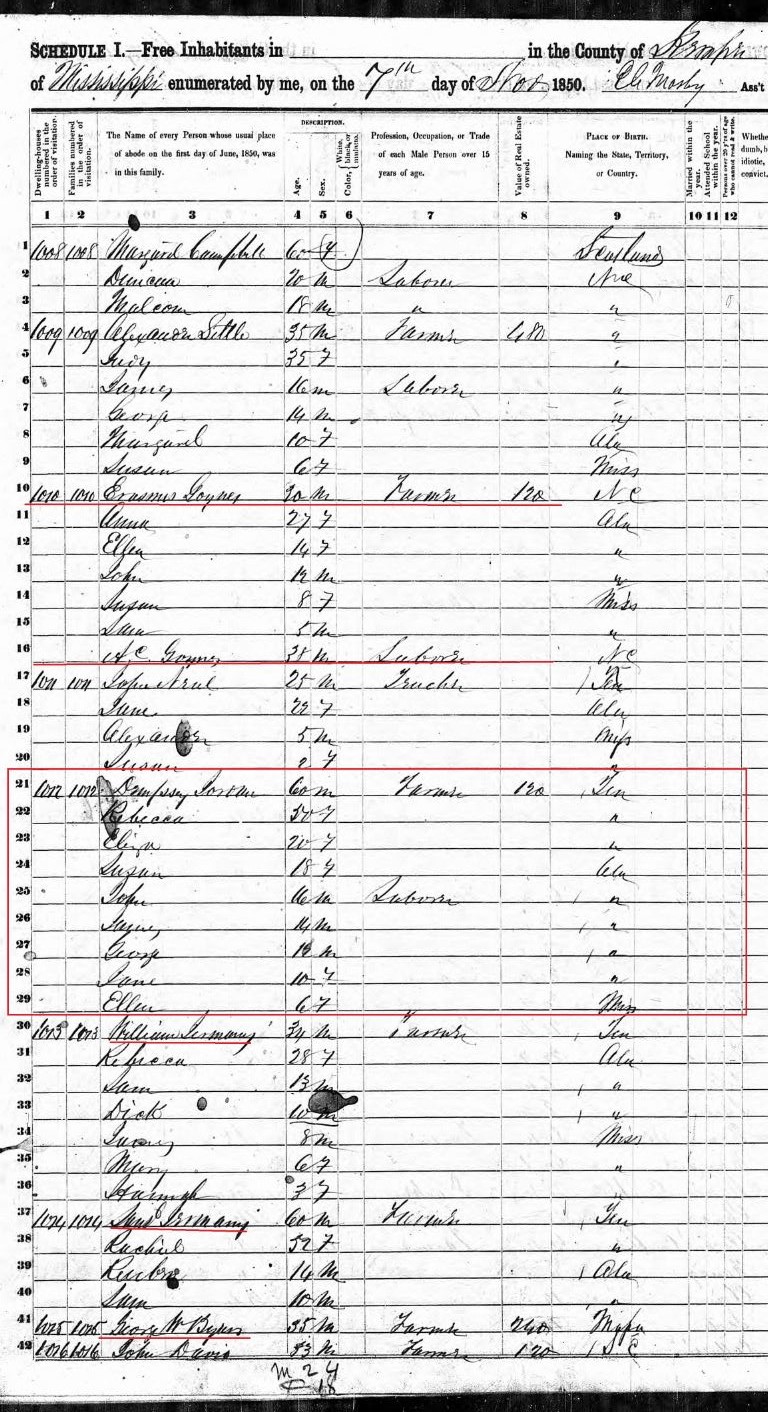 SCHEDULE I.—Free Inhabitants in in the County of Kemper
of Mississippi enumerated by me, on the 7th day of Nov 1850. Ass't
DESCRIPTION.
Dwelling-houses numbered in the order of visitation. Families numbered in the order of visitation. The Name of every Person whose usual place of abode on the first day of June, 1850, was in this family. Age. Sex. White, black, or mulatto. Color, Profession, Occupation, or Trade of each Male Person over 15 years of age. Value of Real Estate owned. PLACE OF BIRTH. Naming the State, Territory, or Country. Married within the year. Attended School within the year. Persons over 20 y'rs of age who cannot read & write. Whethe dumb, b idiotic, convict.
1 2 3 4 5 6 7 8 9 10 11 12
1 1008 1008 Margaret Campbell 60 f Scotland
2 Duncan 20 m Laborer N C
3 Malcom 18 m " "
4 1009 1009 Alexander Little 35 m Farmer 480 "
5 35 f "
6 James 16 m Laborer "
7 George 14 m "
8 Margaret 10 f Ala
9 Susan 6 f Miss
10 1010 1010 Erasmus Goynes 30 m Farmer 120 N C
11 Anna 27 f Ala
12 Ellen 14 f "
13 John 12 m "
14 Susan 8 f Miss
15 Sam 5 m "
16 A C Goynes 38 m Laborer N C
17 1011 1011 John Neal 25 m Teacher Ten
18 Jane 22 f Ala
19 Alexander 5 m Miss
20 Susan 2 f "
21 1012 1012 Dempsey Jordan 60 m Farmer 120 Ten
22 Rebecca 50 f "
23 Eliza 20 f "
24 Susan 18 f Ala
25 John 16 m Laborer "
26 James 14 m "
27 George 12 m "
28 Jane 10 f "
29 Ellen 6 f Miss
30 1013 1013 William Germany 34 m Farmer Ten
31 Rebecca 28 f Ala
32 Sam 13 m "
33 Dick 10 m "
34 James 8 m Miss
35 Mary 6 f "
36 Hannah 3 f
37 1014 1014 Germany 60 m Farmer Ten
38 Rachel 52 f "
39 Reuben 14 m Ala
40 Sam 10 m "
41 1015 1015 George W Byars 35 m Farmer 240
42 1016 1016 John Davis 53 m Farmer 120 S C
m 24
F 18